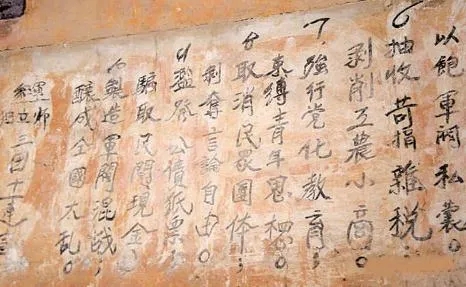 以飽軍閥私囊。
6抽收苛捐雜税、
剥削工農小商。
7、強行党化教育；
束縛青年思想。
8取消民眾團体；
剥奪言論自由。
9盜發公債紙票；
騙取民間現金。
製造軍閥混战；
釀成全國大乱。
三四十連